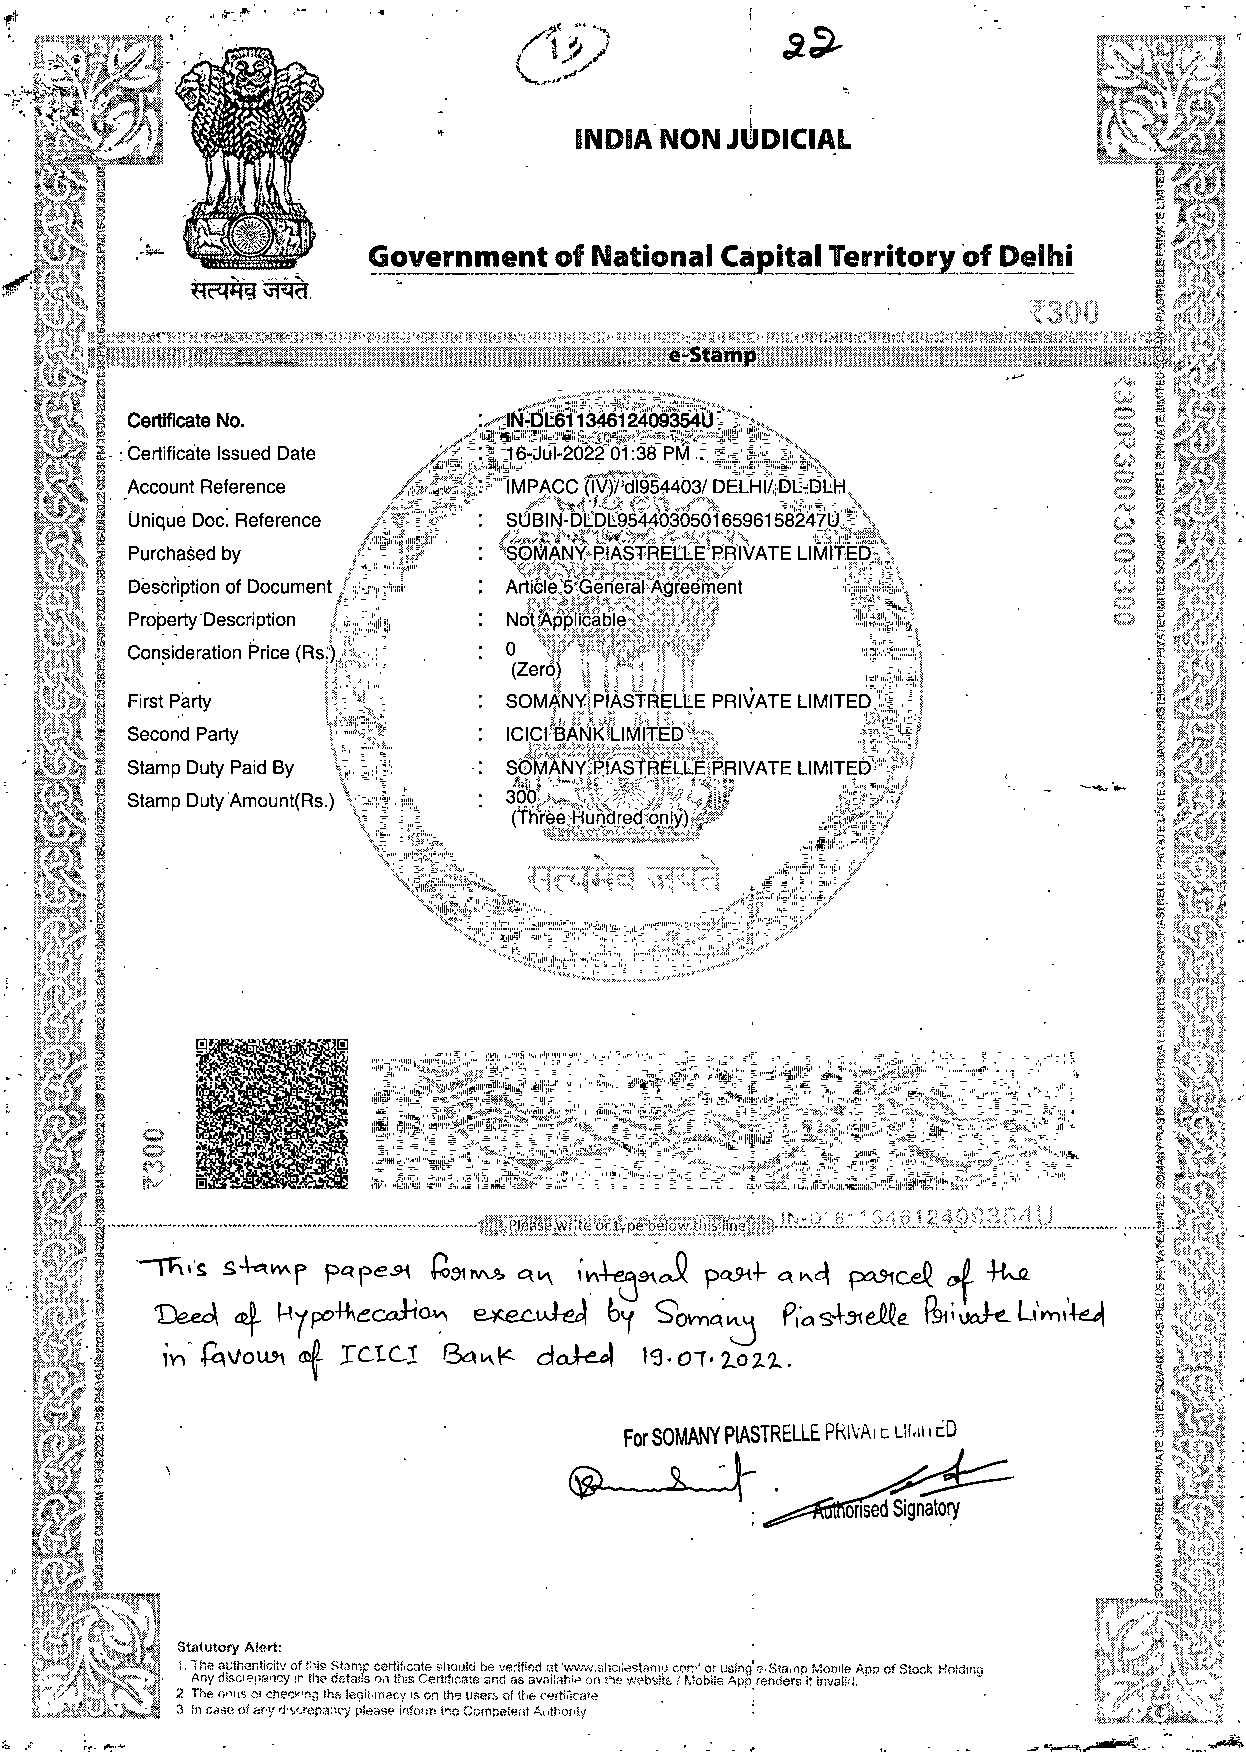 13
22
INDIA NON JUDICIAL
Government of National Capital Territory of Delhi
सत्यमेव जयते
₹300
e-Stamp
Certificate No. : IN-DL61134612409354U
Certificate Issued Date : 16-Jul-2022 01:38 PM
Account Reference : IMPACC (IV)/ dl954403/ DELHI/ DL-DLH
Unique Doc. Reference : SUBIN-DLDL95440305016596158247U
Purchased by : SOMANY PIASTRELLE PRIVATE LIMITED
Description of Document : Article 5 General Agreement
Property Description : Not Applicable
Consideration Price (Rs.) : 0
(Zero)
First Party : SOMANY PIASTRELLE PRIVATE LIMITED
Second Party : ICICI BANK LIMITED
Stamp Duty Paid By : SOMANY PIASTRELLE PRIVATE LIMITED
Stamp Duty Amount(Rs.) : 300
(Three Hundred only)
सत्यमेव जयते
₹300
Please write or type below this line IN-DL61134612409354U
This stamp paper forms an integral part and parcel of the
Deed of Hypothecation executed by Somany Piastrelle Private Limited
in favour of ICICI Bank dated 19.07.2022.
For SOMANY PIASTRELLE PRIVATE LIMITED
Authorised Signatory
Statutory Alert:
1. The authenticity of this Stamp certificate should be verified at 'www.shcilestamp.com' or using e-Stamp Mobile App of Stock Holding
Any discrepancy in the details on this Certificate and as available on the website / Mobile App renders it invalid.
2 The onus of checking the legitimacy is on the users of the certificate
3 In case of any discrepancy please inform the Competent Authority